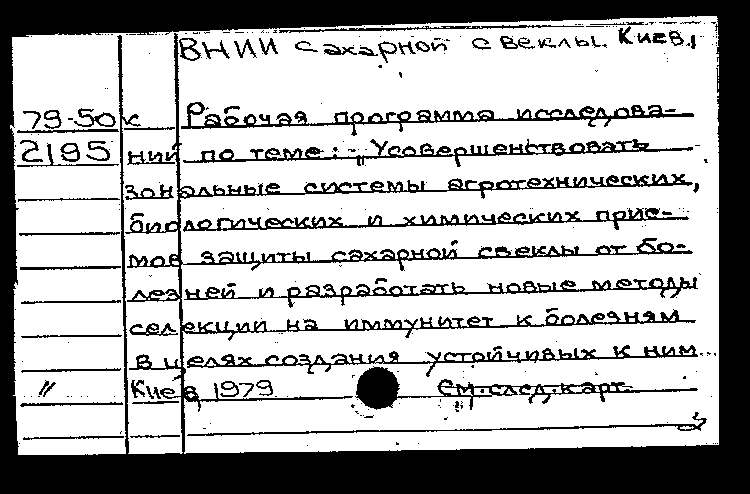 ВНИИ сахарной свеклы. Киев.
79-50к Рабочая программа исследова-
2195 ний по теме: „Усовершенствовать
зональные системы агротехнических,
биологических и химических прие-
мов защиты сахарной свеклы от бо-
лезней и разработать новые методы
селекции на иммунитет к болезням
в целях создания устойчивых к ним...
" Киев, 1979 См. след. карт.